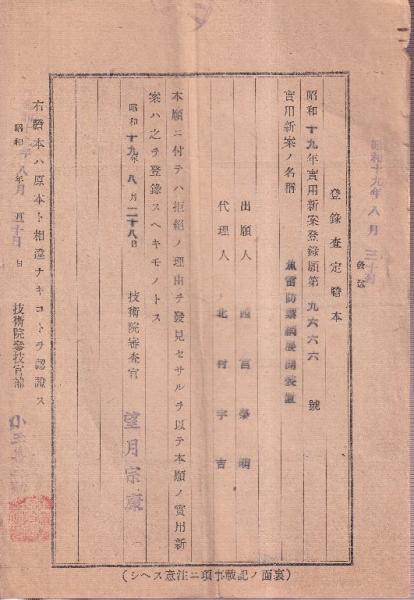 昭和十九年八月三十日
發送
登錄査定謄本
昭和十九年實用新案登錄願第九六六六號
實用新案ノ名稱 魚雷防禦網展開裝置
出願人
代理人 北村宇吉
本願ニ付テハ拒絕ノ理由ヲ發見セサルヲ以テ本願ノ實用新
案ハ之ヲ登錄スヘキモノトス
昭和十九年八月二十八日
技術院審査官 望月宗康
右謄本ハ原本ト相違ナキコトヲ認證ス
昭和 年八月 日
技術院參技官補
(裏面ノ記載事項ニ注意スヘシ)